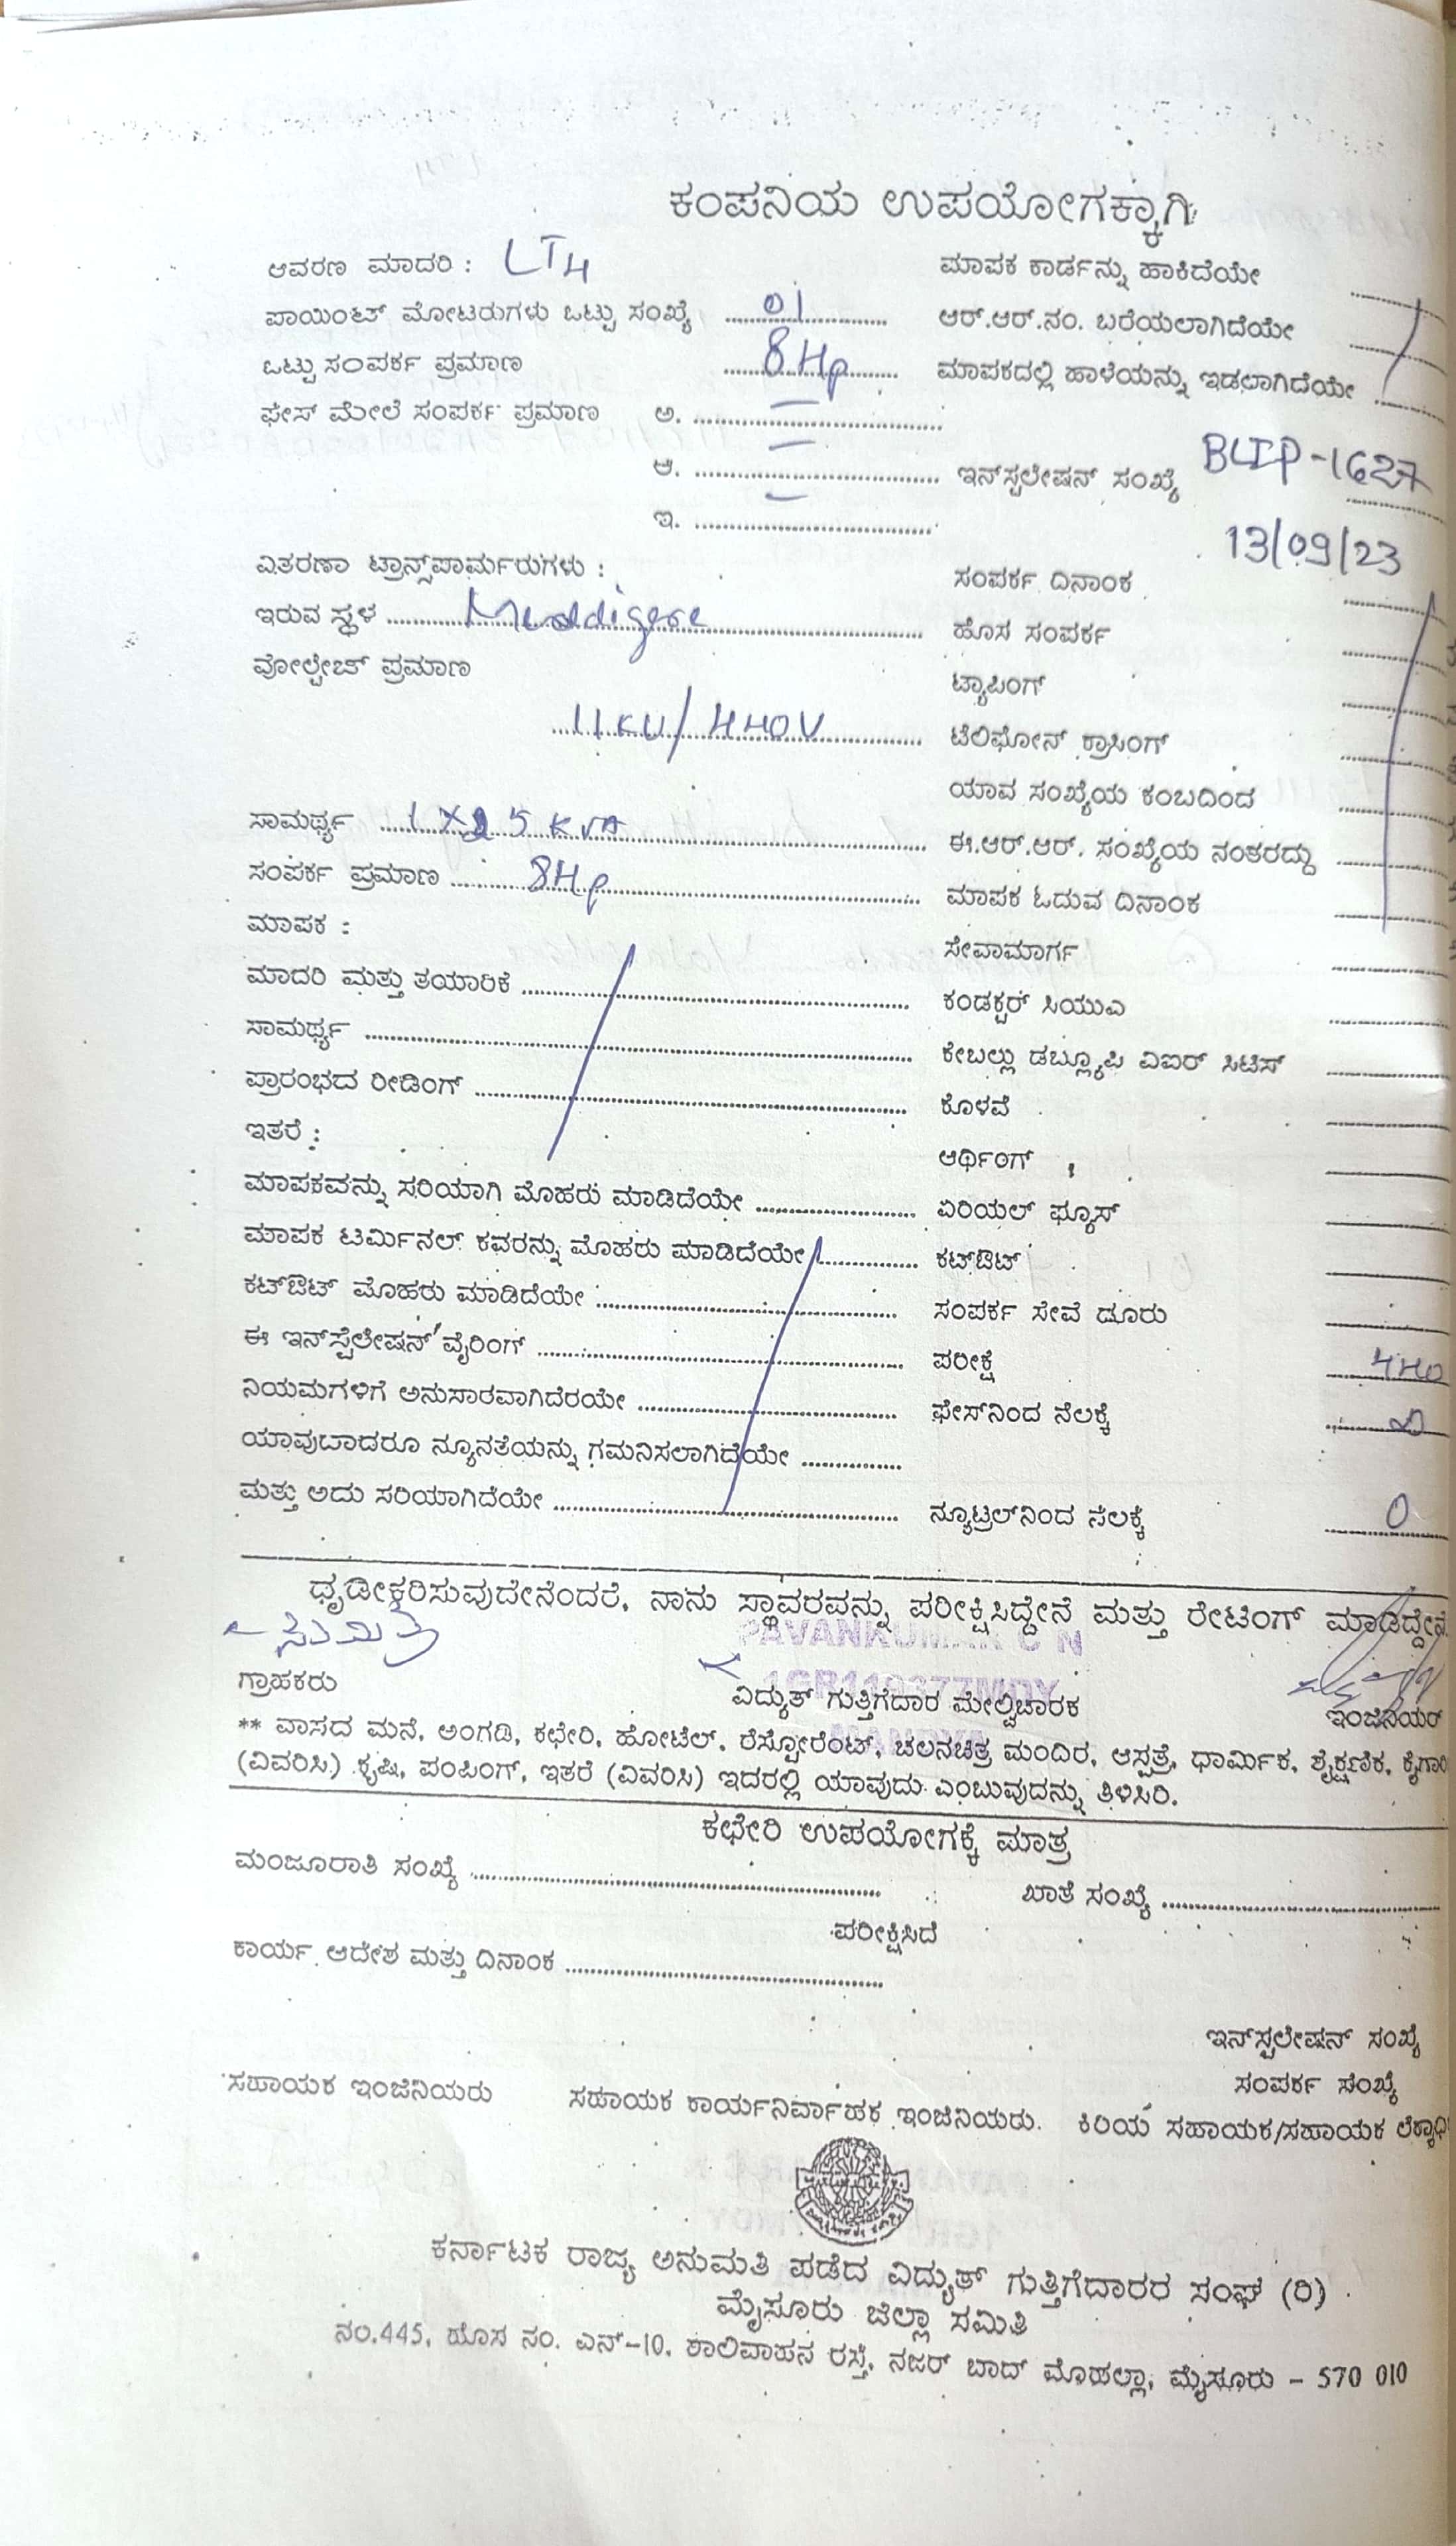 ಕಂಪನಿಯ ಉಪಯೋಗಕ್ಕಾಗಿ
ಆವರಣ ಮಾದರಿ : LT4
ಮಾಪಕ ಕಾರ್ಡನ್ನು ಹಾಕಿದೆಯೇ
ಪಾಯಿಂಟ್ ಮೋಟರುಗಳು ಒಟ್ಟು ಸಂಖ್ಯೆ 01
ಆರ್.ಆರ್.ನಂ. ಬರೆಯಲಾಗಿದೆಯೇ
ಒಟ್ಟು ಸಂಪರ್ಕ ಪ್ರಮಾಣ 8Hp
ಮಾಪಕದಲ್ಲಿ ಹಾಳೆಯನ್ನು ಇಡಲಾಗಿದೆಯೇ
ಫೇಸ್ ಮೇಲೆ ಸಂಪರ್ಕ ಪ್ರಮಾಣ ಅ. –
ಆ. –
ಇನ್‌ಸ್ಟಲೇಷನ್ ಸಂಖ್ಯೆ BLIP-1627
ಇ. –
ವಿತರಣಾ ಟ್ರಾನ್ಸ್‌ಫಾರ್ಮರುಗಳು :
ಸಂಪರ್ಕ ದಿನಾಂಕ 13/09/23
ಇರುವ ಸ್ಥಳ
ಹೊಸ ಸಂಪರ್ಕ
ವೋಲ್ಟೇಜ್ ಪ್ರಮಾಣ
ಟ್ಯಾಪಿಂಗ್
11KV/440V
ಟೆಲಿಫೋನ್ ಕ್ರಾಸಿಂಗ್
ಯಾವ ಸಂಖ್ಯೆಯ ಕಂಬದಿಂದ
ಸಾಮರ್ಥ್ಯ 1X25 KVA
ಈ.ಆರ್.ಆರ್. ಸಂಖ್ಯೆಯ ನಂತರದ್ದು
ಸಂಪರ್ಕ ಪ್ರಮಾಣ 8Hp
ಮಾಪಕ ಓದುವ ದಿನಾಂಕ
ಮಾಪಕ :
ಸೇವಾಮಾರ್ಗ
ಮಾದರಿ ಮತ್ತು ತಯಾರಿಕೆ
ಕಂಡಕ್ಟರ್ ಸಿಯುಎ
ಸಾಮರ್ಥ್ಯ
ಕೇಬಲ್ಲು ಡಬ್ಲ್ಯೂಪಿ ವಿಐರ್ ಸಿಟಿಸ್
ಪ್ರಾರಂಭದ ರೀಡಿಂಗ್
ಕೊಳವೆ
ಇತರೆ :
ಆರ್ಥಿಂಗ್
ಮಾಪಕವನ್ನು ಸರಿಯಾಗಿ ಮೊಹರು ಮಾಡಿದೆಯೇ
ಏರಿಯಲ್ ಫ್ಯೂಸ್
ಮಾಪಕ ಟರ್ಮಿನಲ್ ಕವರನ್ನು ಮೊಹರು ಮಾಡಿದೆಯೇ
ಕಟ್‌ಔಟ್
ಕಟ್‌ಔಟ್ ಮೊಹರು ಮಾಡಿದೆಯೇ
ಸಂಪರ್ಕ ಸೇವೆ ದೂರು
ಈ ಇನ್‌ಸ್ಟೆಲೇಷನ್ ವೈರಿಂಗ್
ಪರೀಕ್ಷೆ 440
ನಿಯಮಗಳಿಗೆ ಅನುಸಾರವಾಗಿದೆರಯೇ
ಫೇಸ್‌ನಿಂದ ನೆಲಕ್ಕೆ ∞
ಯಾವುದಾದರೂ ನ್ಯೂನತೆಯನ್ನು ಗಮನಿಸಲಾಗಿದೆಯೇ
ಮತ್ತು ಅದು ಸರಿಯಾಗಿದೆಯೇ
ನ್ಯೂಟ್ರಲ್‌ನಿಂದ ನೆಲಕ್ಕೆ 0
ಧೃಡೀಕರಿಸುವುದೇನೆಂದರೆ, ನಾನು ಸ್ಥಾವರವನ್ನು ಪರೀಕ್ಷಿಸಿದ್ದೇನೆ ಮತ್ತು ರೇಟಿಂಗ್ ಮಾಡಿದ್ದೇನೆ
ಸುಮಿತ್ರ
PAVANKUMAR C N
1GR119377MDY
ಗ್ರಾಹಕರು
ವಿದ್ಯುತ್ ಗುತ್ತಿಗೆದಾರ ಮೇಲ್ವಿಚಾರಕ
ಇಂಜಿನಿಯರ್
MANDYA
** ವಾಸದ ಮನೆ, ಅಂಗಡಿ, ಕಛೇರಿ, ಹೋಟೆಲ್, ರೆಸ್ಟೋರೆಂಟ್, ಚಲನಚಿತ್ರ ಮಂದಿರ, ಆಸ್ಪತ್ರೆ, ಧಾರ್ಮಿಕ, ಶೈಕ್ಷಣಿಕ,
(ವಿವರಿಸಿ) ಕೃಷಿ, ಪಂಪಿಂಗ್, ಇತರೆ (ವಿವರಿಸಿ) ಇದರಲ್ಲಿ ಯಾವುದು ಎಂಬುವುದನ್ನು ತಿಳಿಸಿರಿ.
ಕಛೇರಿ ಉಪಯೋಗಕ್ಕೆ ಮಾತ್ರ
ಮಂಜೂರಾತಿ ಸಂಖ್ಯೆ
ಖಾತೆ ಸಂಖ್ಯೆ
ಪರೀಕ್ಷಿಸಿದೆ
ಕಾರ್ಯ ಆದೇಶ ಮತ್ತು ದಿನಾಂಕ
ಇನ್‌ಸ್ಟಲೇಷನ್ ಸಂಖ್ಯೆ
ಸಂಪರ್ಕ ಸಂಖ್ಯೆ
ಸಹಾಯಕ ಇಂಜಿನಿಯರು
ಸಹಾಯಕ ಕಾರ್ಯನಿರ್ವಾಹಕ ಇಂಜಿನಿಯರು.
ಕಿರಿಯ ಸಹಾಯಕ/ಸಹಾಯಕ
ಕರ್ನಾಟಕ ರಾಜ್ಯ ಅನುಮತಿ ಪಡೆದ ವಿದ್ಯುತ್ ಗುತ್ತಿಗೆದಾರರ ಸಂಘ (ರಿ)
ಮೈಸೂರು ಜಿಲ್ಲಾ ಸಮಿತಿ
ನಂ.445, ಹೊಸ ನಂ. ಎನ್-10, ಶಾಲಿವಾಹನ ರಸ್ತೆ, ನಜರ್ ಬಾದ್ ಮೊಹಲ್ಲಾ, ಮೈಸೂರು - 570 010